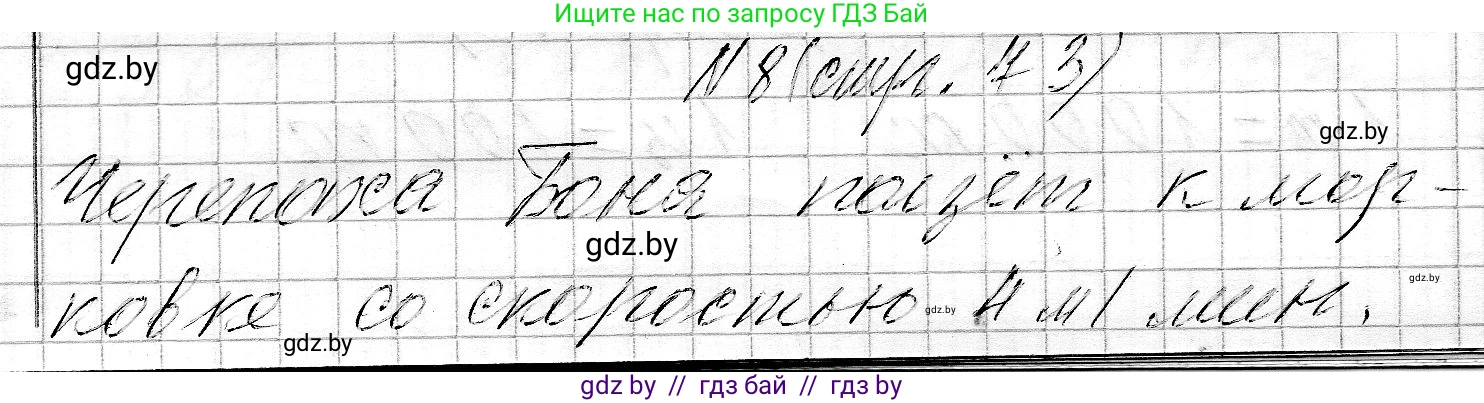 Ищите нас по запросу ГДЗ Бай
gdz.by
N 8 (стр. 43)
gdz.by
Черепаха Боня ползёт к мор-
gdz.by
ковке со скоростью 4 м/мин.
gdz.by
gdz.by
gdz.by
gdz.by // гдз бай // гдз by